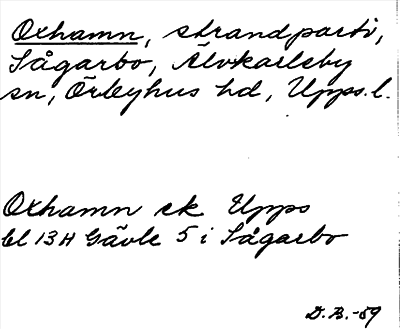 Oxhamn, strandparti,
Sågarbo, Älvkarleby
sn, Örbyhus hd, Upps. l.
Oxhamn ek Upps
bl 13H Gävle 5 i Sågarbo
D.B. -59